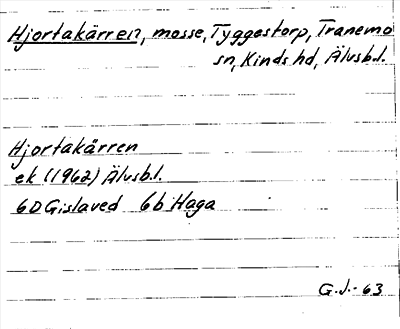 Hjortakärren, mosse, Tyggestorp, Tranemo
sn, Kinds hd, Älvsb.l.
Hjortakärren
ek (1962) Älvsb.l.
6D Gislaved 6b Haga
G.J.-63